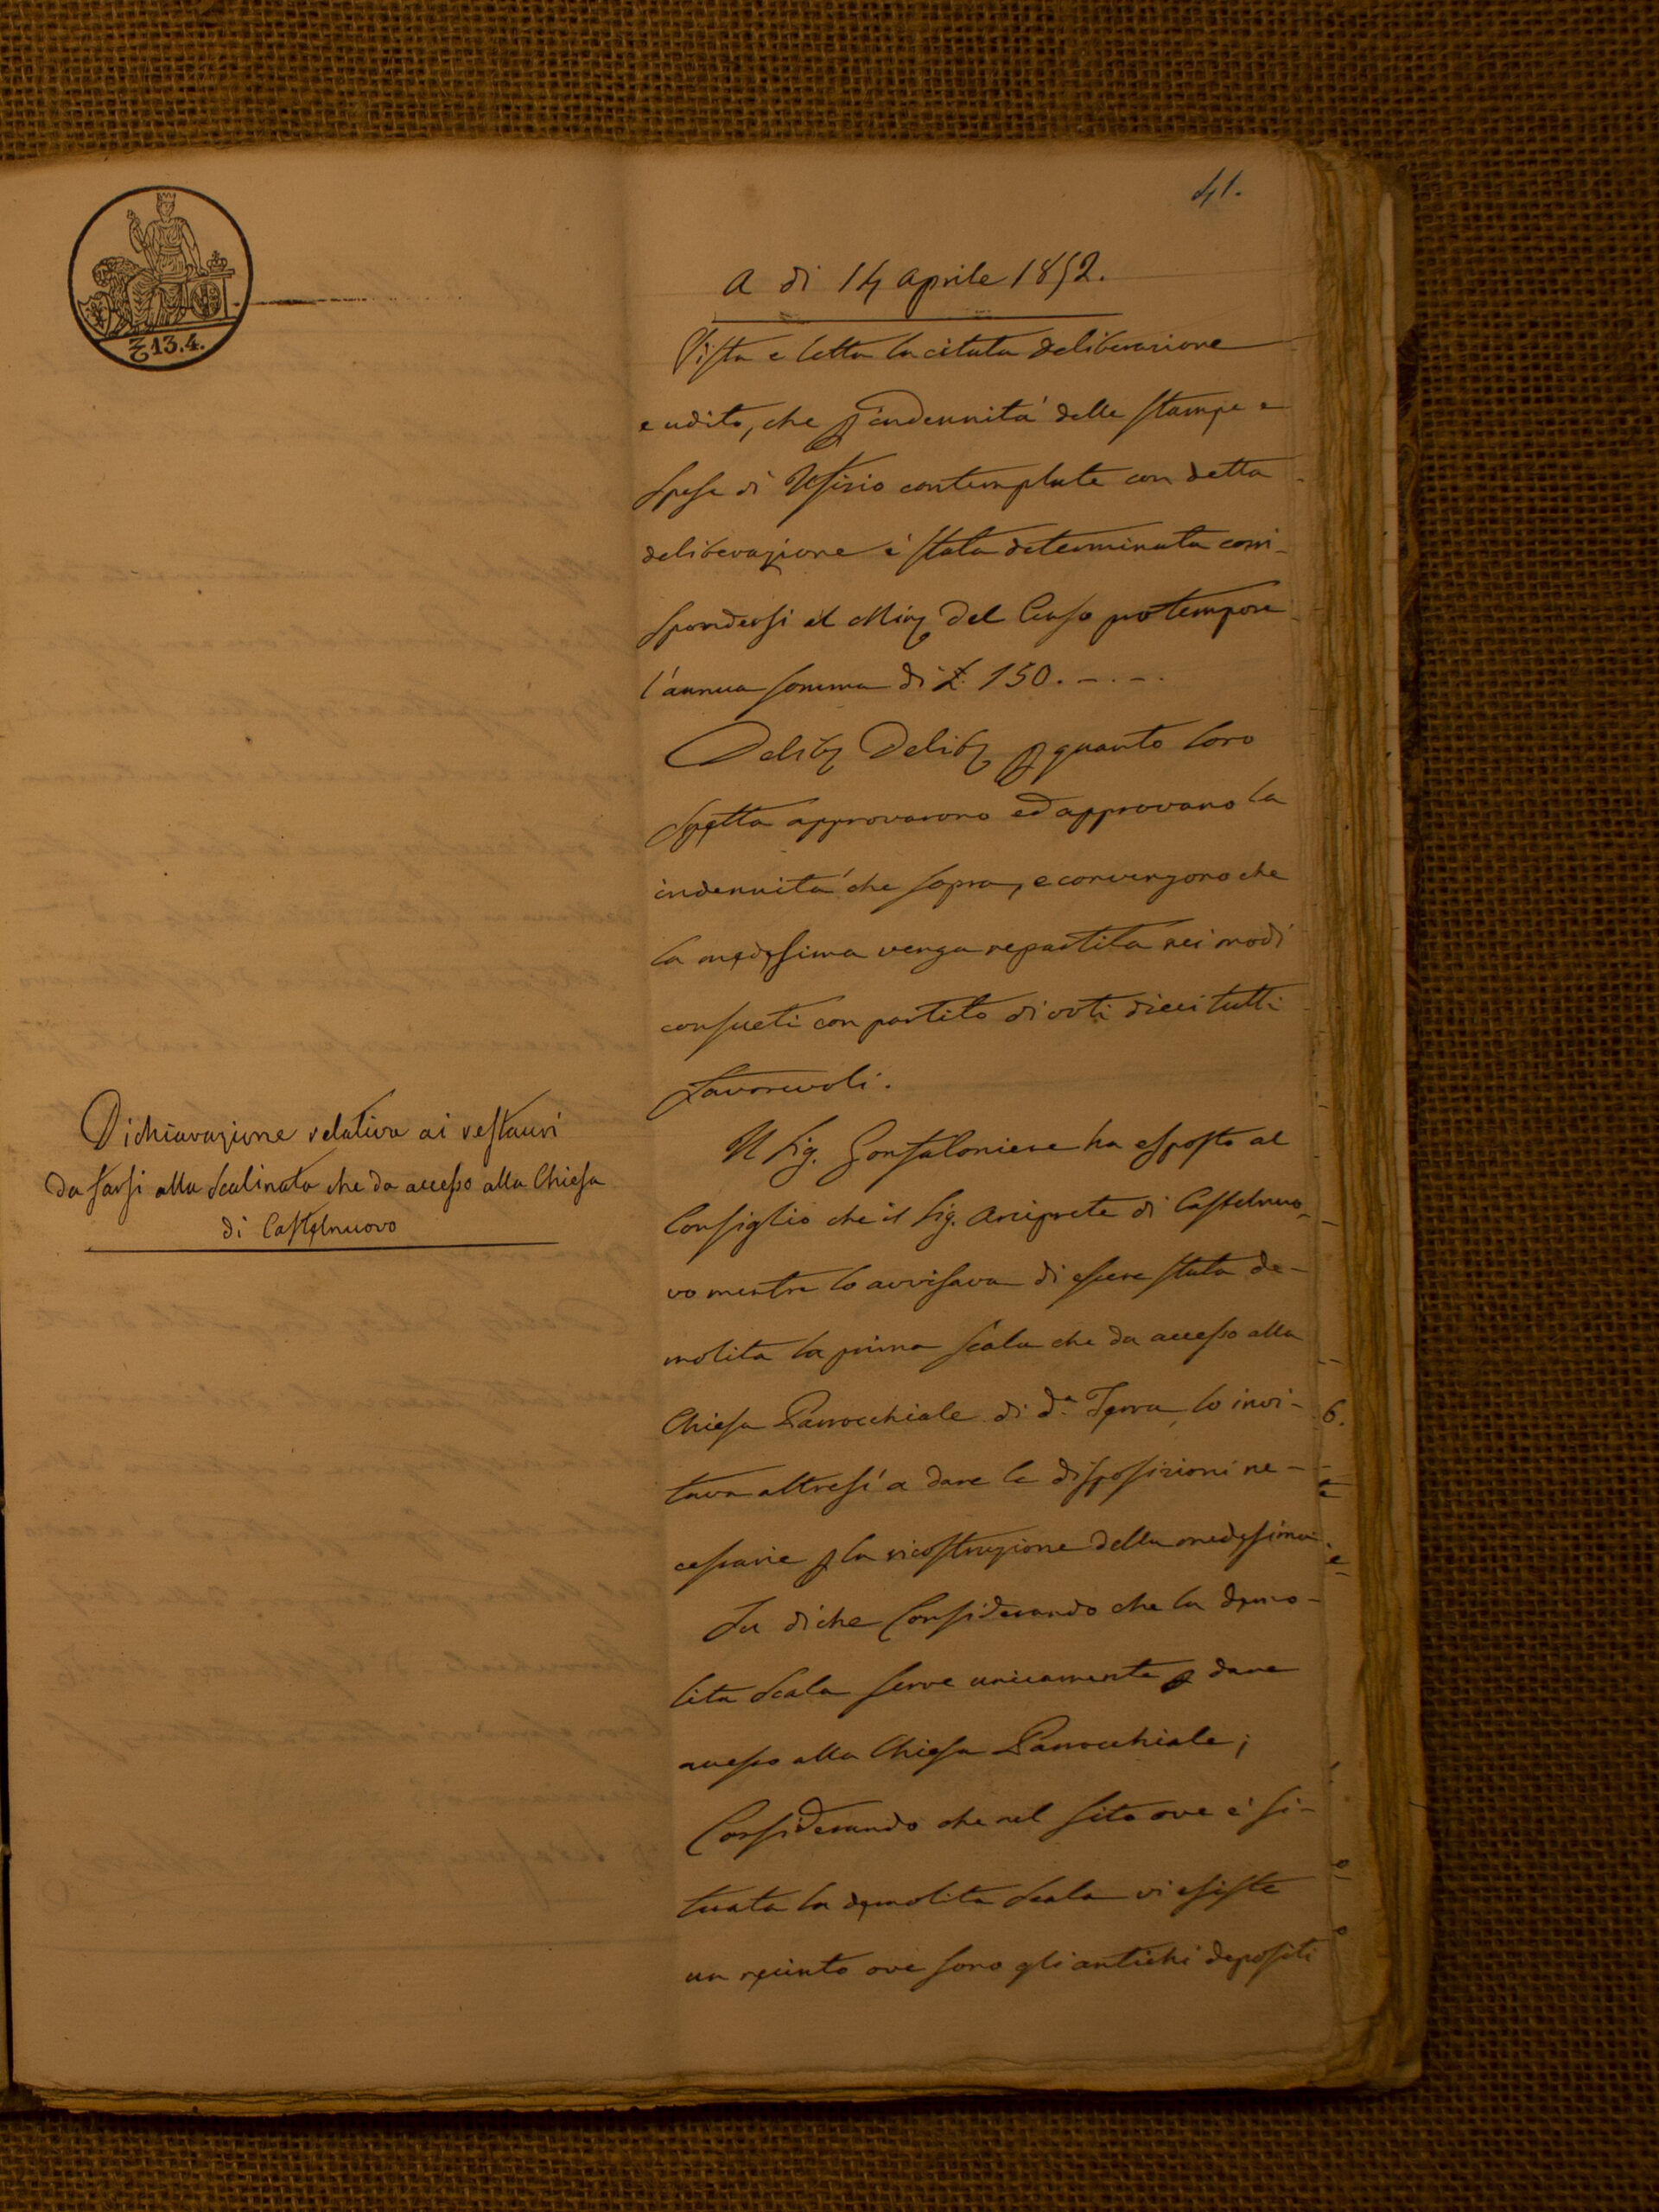 41.
13.4.
A di 14 Aprile 1852.
Vista e letta la citata deliberazione
e udito, che p l'indennità delle stampe e
spese di Ufizio contemplate con detta
deliberazione è stata determinata corri-
spondersi al Min del Censo pro tempore
l'annua somma di £. 150. — . — .
Delib Delib p quanto loro
spetta approvarono ed approvano la
indennità che sopra, e convengono che
la medesima venga repartita nei modi
consueti con partito di voti dieci tutti
favorevoli.
Dichiarazione relativa ai restauri
da farsi alla Scalinata che da accesso alla Chiesa
di Castelnuovo
Il Sig. Gonfaloniere ha esposto al
Consiglio che il Sig. Arciprete di Castelnuo-
vo mentre lo avvisava di essere stata de-
molita la prima scala che da accesso alla
Chiesa Parrocchiale di d.a Terra lo invi-
tava altresì a dare le disposizioni ne-
cessarie p la ricostruzione della medesima.
Su di che Considerando che la demo-
lita Scala serve unicamente p dare
accesso alla Chiesa Parrocchiale;
Considerando che nel sito ove è si-
tuata la demolita Scala vi esiste
un recinto ove sono gli antichi depositi